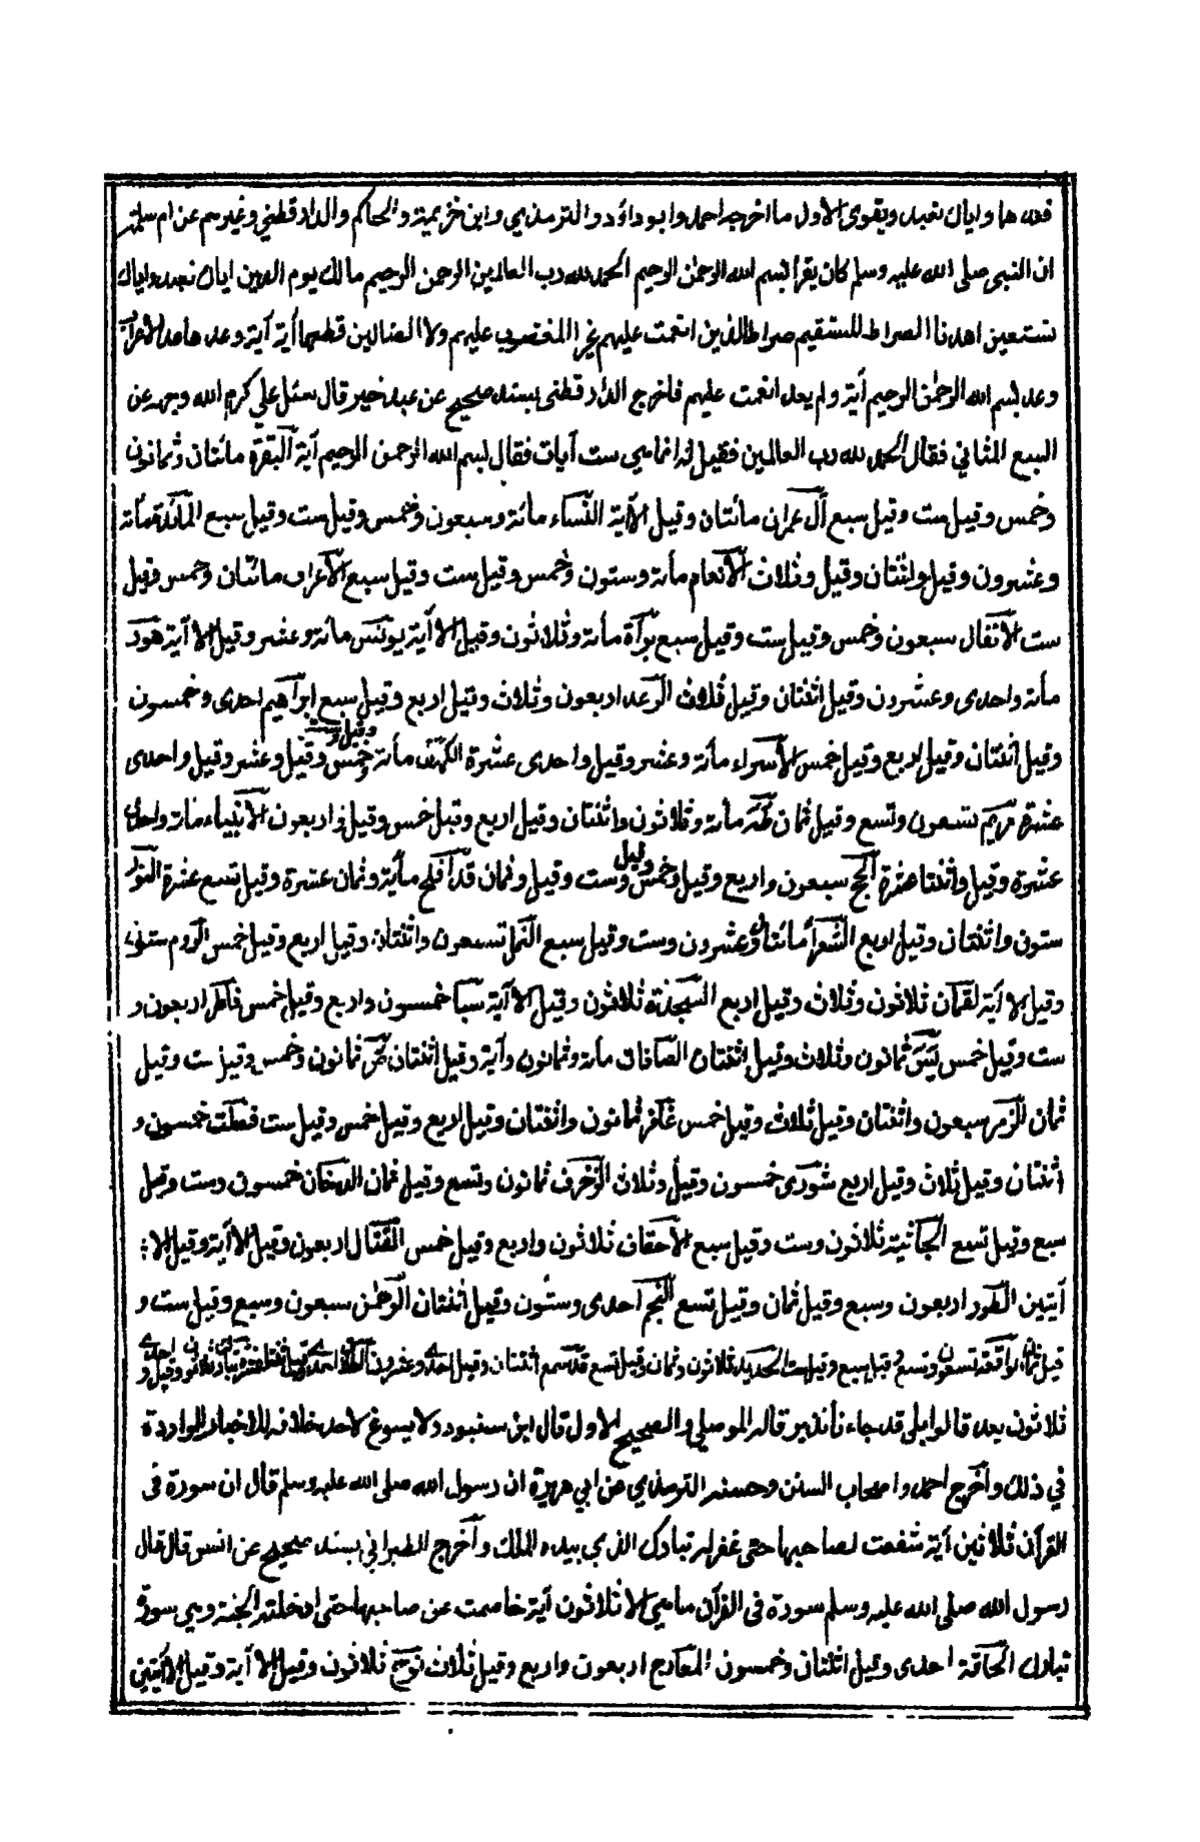 فعدها واياك نعبد ويقوى الاول ما اخرجه احمد وابوداؤد والترمذي وابن خزيمة والحاكم والدارقطني وغيرهم عن ام سلمة
ان النبي صلى الله عليه وسلم كان يقرأ بسم الله الرحمٰن الرحيم الحمد لله رب العالمين الرحمن الرحيم مالك يوم الدين اياك نعبد واياك
نستعين اهدنا الصراط المستقيم صراط الذين انعمت عليهم غير المغضوب عليهم ولا الضالين قطعها أية آية وعدها عد الاعراب
وعد بسم الله الرحمٰن الرحيم آية ولم يعد انعمت عليهم فاخرج الدارقطنى بسند صحيح عن عبد خير قال سئل علي كرم الله وجهه عن
السبع المثاني فقال الحمد لله رب العالمين فقيل له انما هي ست آيات فقال بسم الله الرحمن الرحيم آية البقرة مائتان وثمانون
وخمس وقيل ست وقيل سبع آل عمران مائتان وقيل الاآية النساء مائة وسبعون وخمس وقيل ست وقيل سبع المائدة مأة
وعشرون وقيل واثنتان وقيل وثلاث الانعام مأة وستون وخمس وقيل ست وقيل سبع الاعراف مائتان وخمس وقيل
ست الانفال سبعون وخمس وقيل ست وقيل سبع برآة مأة وثلاثون وقيل الا آية يونس مائة وعشر وقيل الا آية هود
مأة واحدى وعشرون وقيل اثنتان وقيل ثلاث الرعد اربعون وثلاث وقيل اربع وقيل سبع ابرآهيم احدى وخمسون
وقيل اثنتان وقيل اربع وقيل خمس الاسراء مأة وعشر وقيل واحدى عشرة الكهف مأة وخمس وقيل وست وقيل وعشر وقيل واحدى
عشرة مريم تسعون وتسع وقيل ثمان طه مأة وثلاثون واثنتان وقيل اربع وقيل خمس وقيل اربعون الانبياء مأة واحدى
عشرة وقيل واثنتا عشرة الحج سبعون واربع وقيل وخمس وقيل وست وقيل وثمان قد افلح مأية وثمان عشرة وقيل تسع عشرة النور
ستون واثنتان وقيل اربع الشعرآء مائتان وعشرون وست وقيل سبع النمل تسعون واثنتان وقيل اربع وقيل خمس الروم ستون
وقيل الا آية لقمان ثلاثون وثلاث وقيل اربع السجدة ثلاثون وقيل الا آية سبا خمسون واربع وقيل خمس فاطر اربعون و
ست وقيل خمس يس ثمانون وثلاث وقيل اثنتان الصافات مأة وثمانون وآية وقيل اثنتان ص ثمانون وخمس وقيل ست وقيل
ثمان الزمر سبعون واثنتان وقيل ثلاث وقيل خمس غافر ثمانون واثنتان وقيل اربع وقيل خمس وقيل ست فصلت خمسون و
اثنتان وقيل ثلاث وقيل اربع شورى خمسون وقيل وثلاث الزخرف ثمانون وتسع وقيل ثمان الدخان خمسون وست وقيل
سبع وقيل تسع الجاثية ثلاثون وست وقيل سبع الاحقاف ثلاثون واربع وقيل خمس القتال اربعون وقيل الا آية وقيل الا
آيتين الطور اربعون وسبع وقيل ثمان وقيل تسع النجم احدى وستون وقيل اثنتان الرحمٰن سبعون وسبع وقيل ست و
قيل ثمان الواقعة تسعون وتسع وقيل سبع وقيل ست الحديد ثلاثون وثمان وقيل تسع قد سمع اثنتان وقيل احدى وعشرون الطلاق احدى وقيل اثنتا عشرة تبارك ثلاثون وقيل احدى و
ثلاثون بعد قالوا بلى قد جاءنا نذير قاله الموصلي والصحيح الاول قال ابن سنبود ولا يسوغ لاحد خلافه للاخبار الواردة
في ذلك وأخرج احمد واصحاب السنن وحسنه الترمذي عن ابي هريرة ان رسول الله صلى الله عليه وسلم قال ان سورة فى
القرآن ثلاثين آية شفعت لصاحبها حتى غفر له تبارك الذي بيده الملك وآخرج الطبراني بسند صحيح عن انس قال قال
رسول الله صلى الله عليه وسلم سورة فى القرآن ما هي الا ثلاثون آية خاصمت عن صاحبها حتى ادخلته الجنة وهي سورة
تبارك الحاقة احدى وقيل اثنتان وخمسون المعارج اربعون واربع وقيل ثلاث نوح ثلاثون وقيل الا آية وقيل الا آيتين